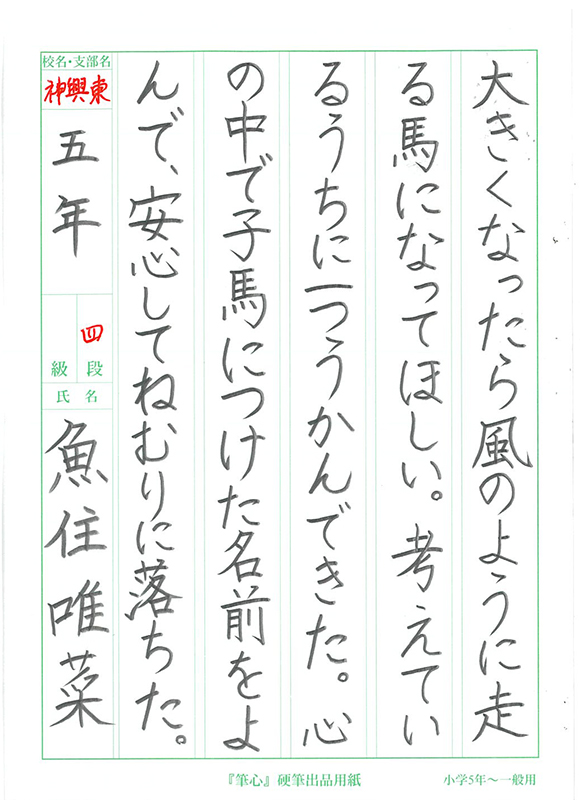 大きくなったら風のように走
る馬になってほしい。考えてい
るうちに一つうかんできた。心
の中で子馬につけた名前をよ
んで、安心してねむりに落ちた。
校名・支部名
神興東
五年
四
段
級
氏名
魚住唯菜
『筆心』硬筆出品用紙
小学5年～一般用